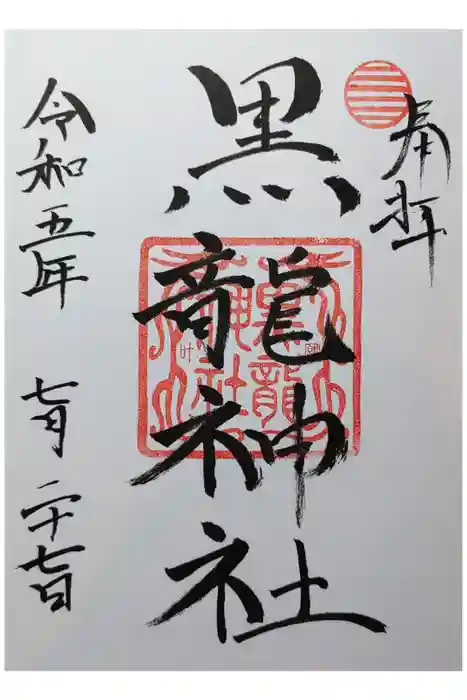 奉拝
黒龍神社
令和五年
七月二十七日